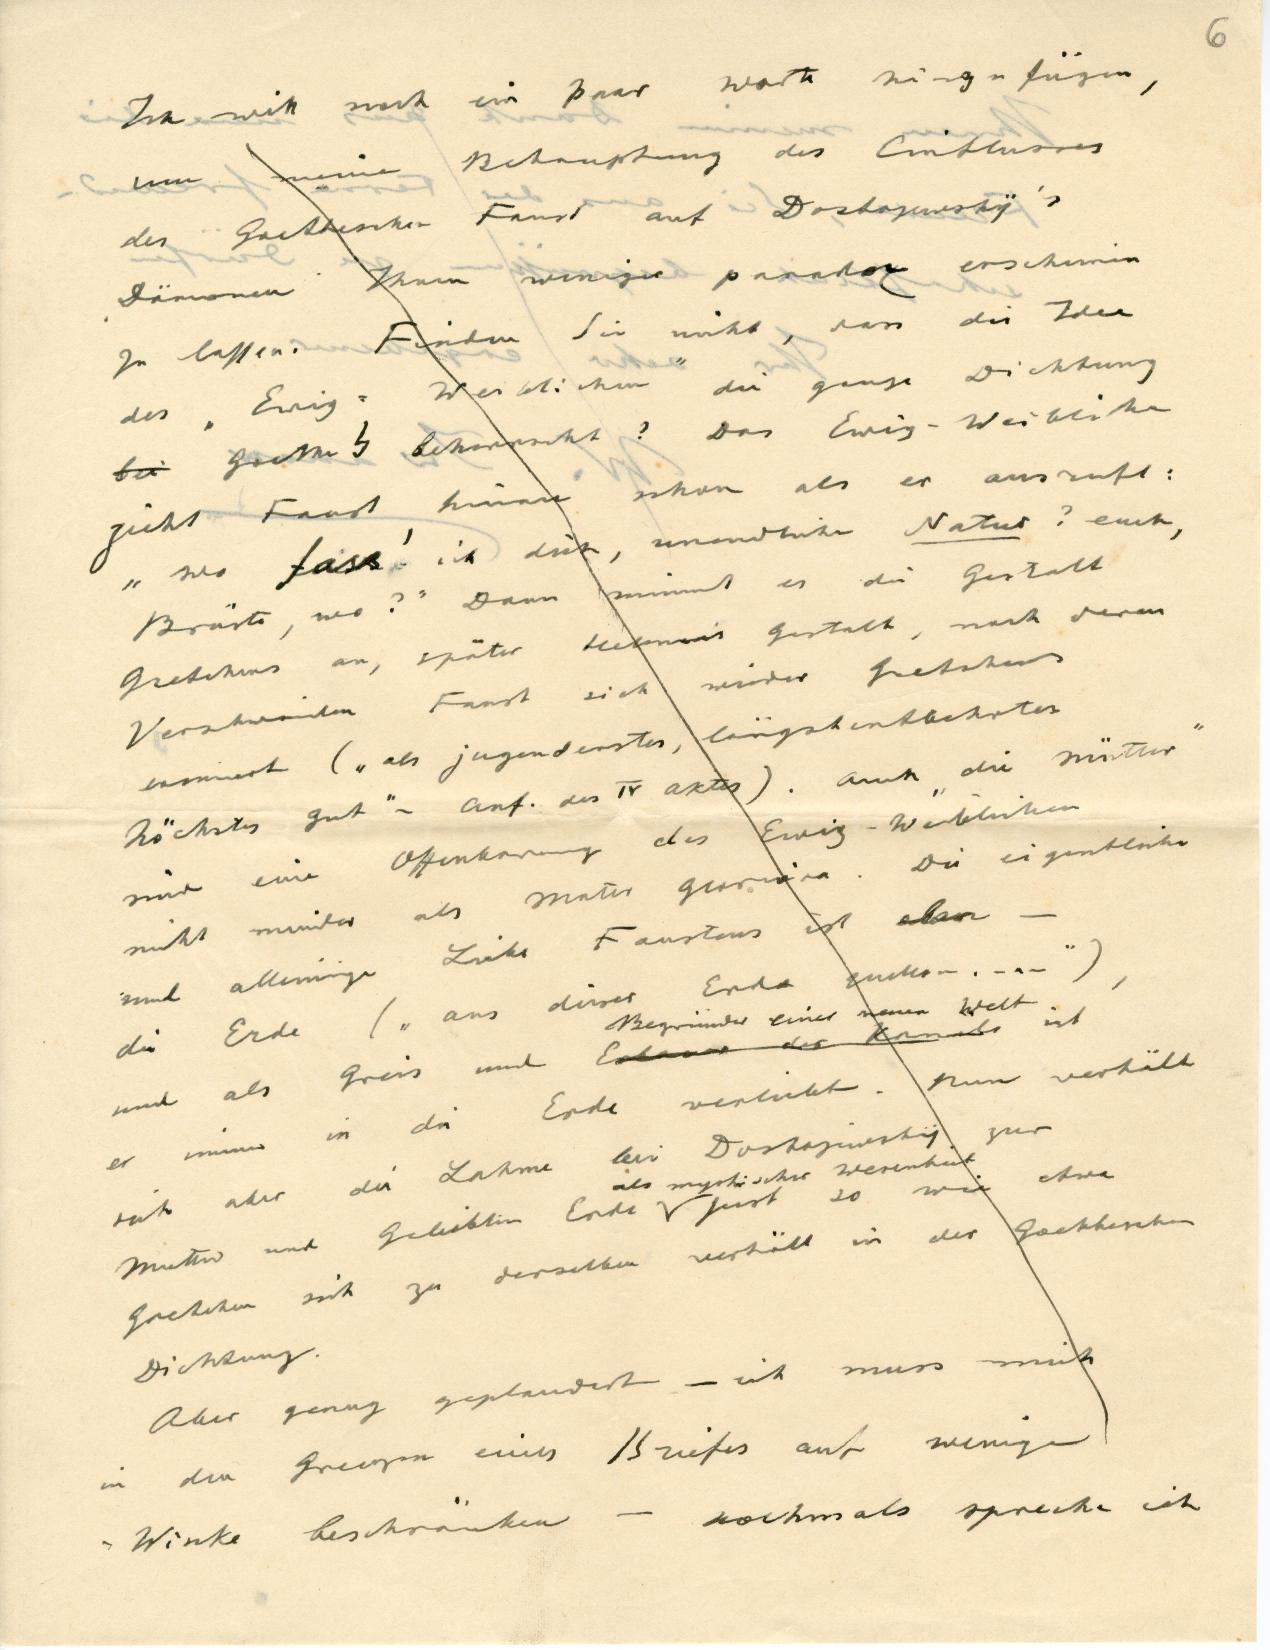 6
Ich will noch ein paar Worte hinzufügen,
um meine Behauptung des Einflusses
des Goetheschen Faust auf Dostojewskij's
Dämonen Ihnen weniger paradox erscheinen
zu lassen. Finden Sie nicht, dass die Idee
des „Ewig-Weiblichen" die ganze Dichtung
bei Goethes beherrscht? Das Ewig-Weibliche
zieht Faust hinan schon als er ausruft:
„wo fass' ich dich, unendliche Natur? euch,
Brüste, wo?" Dann nimmt es die Gestalt
Gretchens an, später Helena's Gestalt, nach deren
Verschwinden Faust sich wieder Gretchens
erinnert („als jugenderstes, längstentbehrtes
höchstes Gut" - Anf. des IV Aktes). Auch „die Mütter"
sind eine Offenbarung des Ewig-Weiblichen
nicht minder als Mater Gloriosa. Die eigentliche
und alleinige Liebe Faustens ist eben —
die Erde („aus dieser Erde quellen . --- "),
und als Greis und Begründer einer neuen Welt ist
Erbauer des Kanals
er immer in die Erde verliebt. Nun verhält
sich aber die Lahme bei Dostojewskij zur
Mutter und Geliebten Erde als mystischer Wesenheit just so wie etwa
Gretchen sich zu derselben verhält in der Goetheschen
Dichtung.
Aber genug geplaudert — ich muss mich
in den Grenzen eines Briefes auf wenige
Winke beschränken — nochmals spreche ich